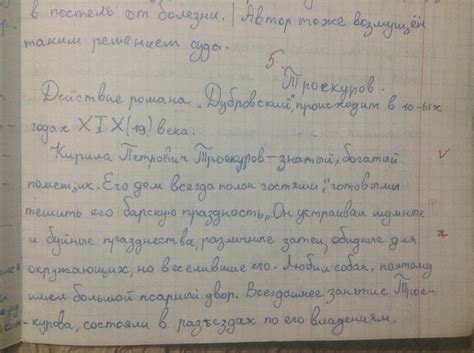 в постель от болезни. Автор тоже возмущён
таким решением суда.
5
Троекуров.
Действие романа „Дубровский", происходит в 10-ых
годах XIX (19) века.
Кирила Петрович Троекуров – знатый, богатый
помещик. Его дом всегда полон гостями, „готовыми
тешить его барскую праздность„. Он устраивал шумные
и буйные празднества, различные затеи, обидные для
окружающих, но веселившие его. Любил собак, поэтому
имел большой псарный двор. Всегдашнее занятие Трое-
курова, состояли в разъездах по его владениям.